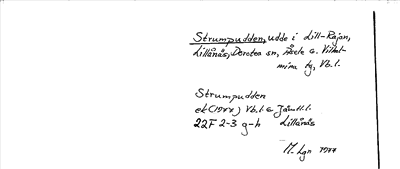 Strumpudden, udde i Lill-Rajan,
Lillånäs, Dorotea sn, Åsele o. Vilhel-
mina tg, Vb.l.
Strumpudden
ek (1977) Vb.l. o Jämtl.l.
22F 2-3 g-h Lillånäs
M. Lgn 1977